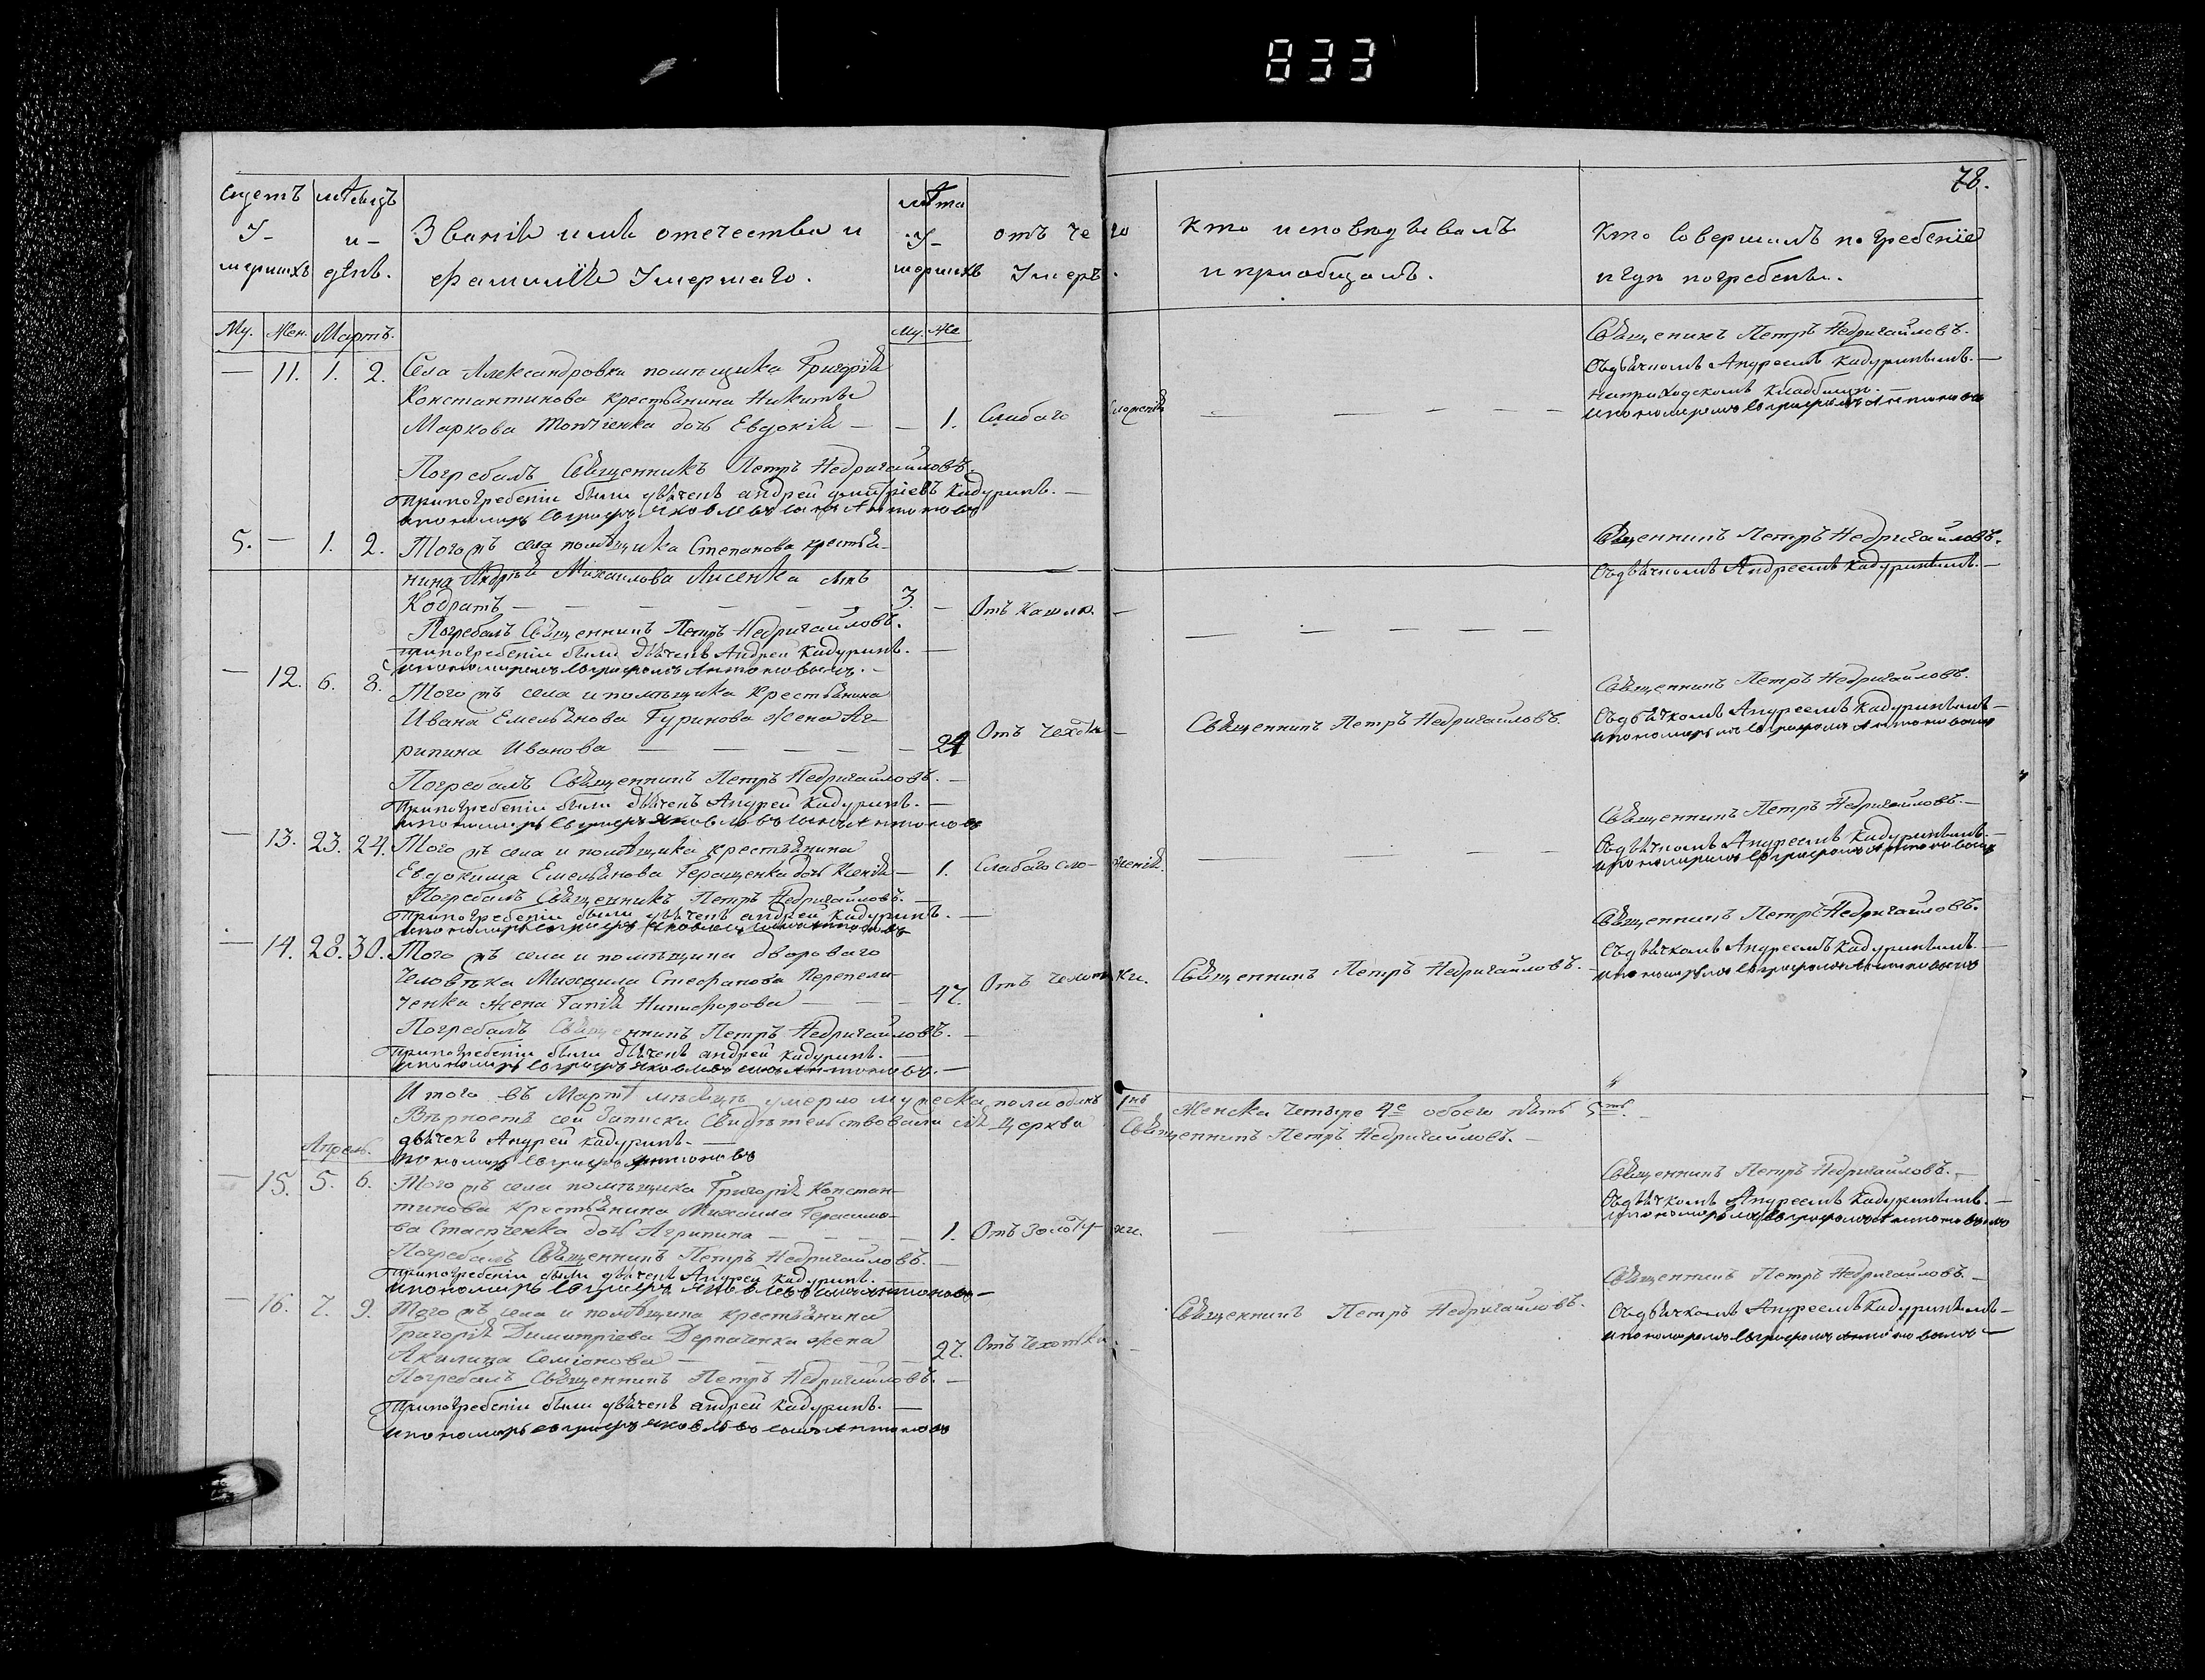 833
78.
Счетъ
У-
мершихъ
мѣсяцъ
и-
день.
Званіе имя отечество и
фамилія Умершаго.
лѣта
У-
мершихъ
отъ чего
Умеръ.
Кто исповѣдывалъ
и пріобщалъ.
Кто Совершалъ погребеніе
и гдѣ погребены.
Му. Жен. Мартъ.
Му. Же
— 11. 1. 2. Села Александровки помѣщика Григорія
Константинова крестьянина Никиты
Маркова дочь Евдокія — — 1. Слабаго сложенія
Священникъ Петръ Недригайловъ.
Съ дьячкомъ Андреемъ Кадуринымъ. —
на приходскомъ кладбищѣ. —
и пономаремъ Евграфомъ Антоновымъ
Погребалъ Священникъ Петръ Недригайловъ.
При погребеніи были дьячекъ Андрей Дмитріевъ Кадуринъ. —
и пономарь Евграфъ Яковлевъ сынъ Антоновъ
5. — 1. 2. Того жъ села помѣщика Степанова крестья-
нина Андрія Михаилова Лисенка сынъ
Кодратъ — — — — — 3. — Отъ Кашлю. —
Священникъ Петръ Недригайловъ.
Съ дьячкомъ Андреемъ Кадуринымъ. —
Погребалъ Священникъ Петръ Недригайловъ.
При погребеніи были дьячекъ Андрей Кадуринъ. —
и пономаремъ Евграфомъ Антоновымъ. —
— 12. 6. 8. Того жъ села и помѣщика крестьянина
Ивана Емельянова Гуринова жена Аг-
рипина Иванова — — — — — 24 Отъ Чехотки —
Священникъ Петръ Недригайловъ.
Священникъ Петръ Недригайловъ.
Съ дьячкомъ Андреемъ Кадуринымъ —
и пономаремъ Евграфомъ Антоновымъ
Погребалъ Священникъ Петръ Недригайловъ. —
При погребеніи были дьячекъ Андрей Кадуринъ. —
и пономарь Евграфъ Яковлевъ сынъ Антоновъ
— 13. 23. 24. Того жъ села и помѣщика крестьянина
Евдокима Емельянова Геращенка дочь Ксенія — 1. Слабаго сло- женія.
Священникъ Петръ Недригайловъ. —
Съ дьячкомъ Андреемъ Кадуринымъ. —
и пономаремъ Евграфомъ Антоновымъ
Погребалъ Священникъ Петръ Недригайловъ. —
При погребеніи были дьячекъ Андрей Кадуринъ. —
и пономарь Евграфъ Яковлевъ сынъ Антоновъ
— 14. 28. 30. Того жъ села и помѣщика дворового
Человѣка Михаила Стефанова Перепели-
ченка жена Гапія Никифорова — — — 47. Отъ Чехотки.
Священникъ Петръ Недригайловъ. —
Священникъ Петръ Недригайловъ.
Съ дьячкомъ Андреемъ Кадуринымъ. —
и пономаремъ Евграфомъ Антоновымъ
Погребалъ Священникъ Петръ Недригайловъ. —
При погребеніи были дьячекъ Андрей Кадуринъ. —
и пономарь Евграфъ Яковлевъ сынъ Антоновъ. —
Итого въ Мартѣ мѣсяцѣ умерло мужеска пола одинъ 1нъ Женска Четыре 4е обоего пять 5ть. —
Вѣрность сей Записки Свидѣтельствовали сей Церкви Священникъ Петръ Недригайловъ. —
дьячекъ Андрей Кадуринъ. —
пономарь Евграфъ Антоновъ
Апрель.
— 15. 5. 6. Того жъ села помѣщика Григорія Констан-
тинова крестьянина Михаила Герасимо-
ва дочь Агрипина — — — — 1. Отъ Золотухи.
Священникъ Петръ Недригайловъ. —
Съ дьячкомъ Андреемъ Кадуринымъ. —
и пономаремъ Евграфомъ Антоновымъ
Погребалъ Священникъ Петръ Недригайловъ. —
При погребеніи были дьячекъ Андрей Кадуринъ. —
и пономарь Евграфъ Яковлевъ сынъ Антоновъ —
— 16. 7. 9. Того жъ села и помѣщика крестьянина
Григорія Димитріева Дерпаченка жена
Акилина Семіонова — — — — 27. Отъ Чехотки. —
Священникъ Петръ Недригайловъ.
Священникъ Петръ Недригайловъ. —
Съ дьячкомъ Андреемъ Кадуринымъ —
и пономаремъ Евграфомъ Антоновымъ —
Погребалъ Священникъ Петръ Недригайловъ. —
При погребеніи были дьячекъ Андрей Кадуринъ. —
и пономарь Евграфъ Яковлевъ сынъ Антоновъ